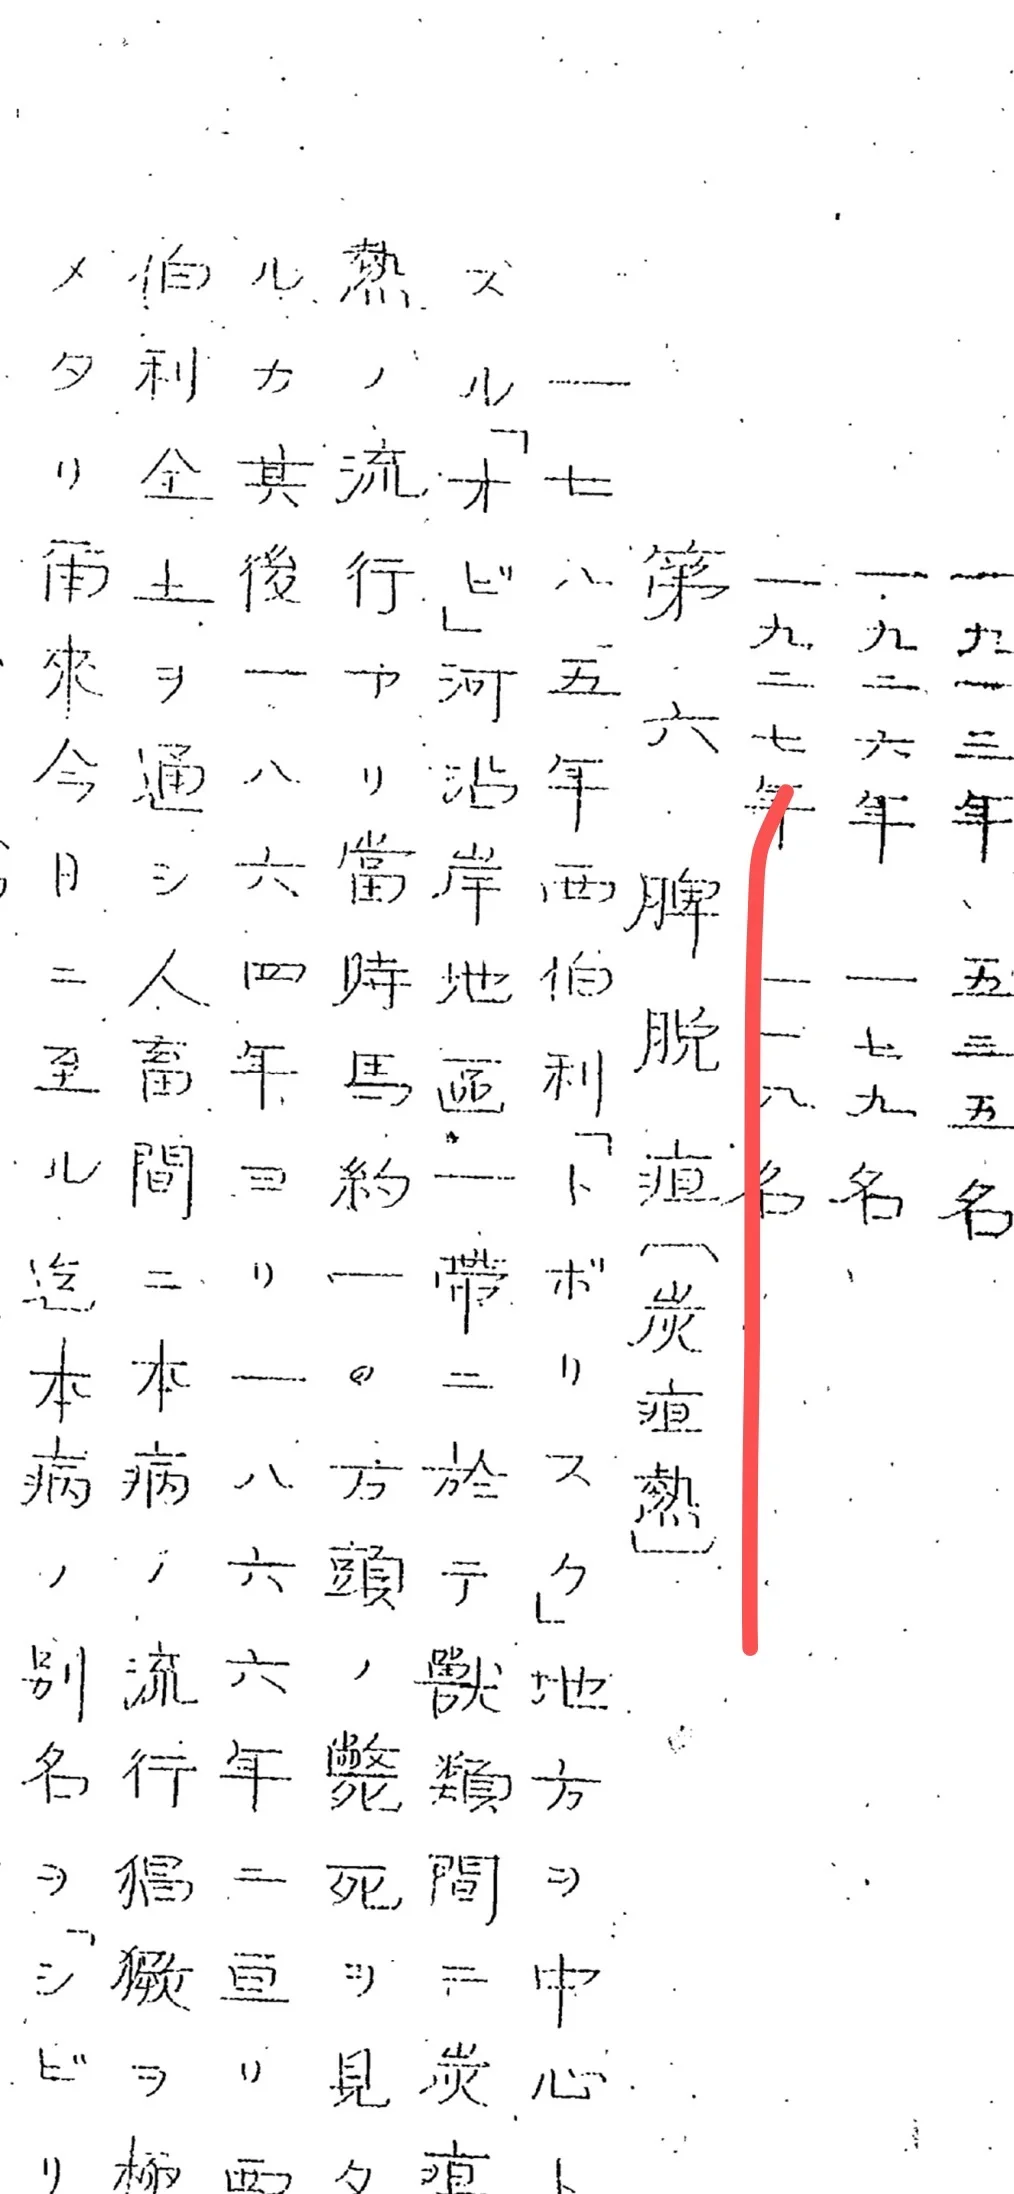 一九一三年　五三五名
一九二六年　一七九名
一九二七年　一一八名
第六　脾脱疽〔炭疽熱〕
一七八五年西伯利「トボリスク」地方ヲ中心ト
スル「オビ」河沿岸地區一帶ニ於テ獸類間ニ炭疽
熱ノ流行アリ當時馬約一〇方頭ノ斃死ヲ見タ
ルカ其後一八六四年ヨリ一八六六年ニ亘リ西
伯利全土ヲ通シ人畜間ニ本病ノ流行猖獗ヲ極
メタリ爾來今日ニ至ル迄本病ノ別名ヲ「シビリ